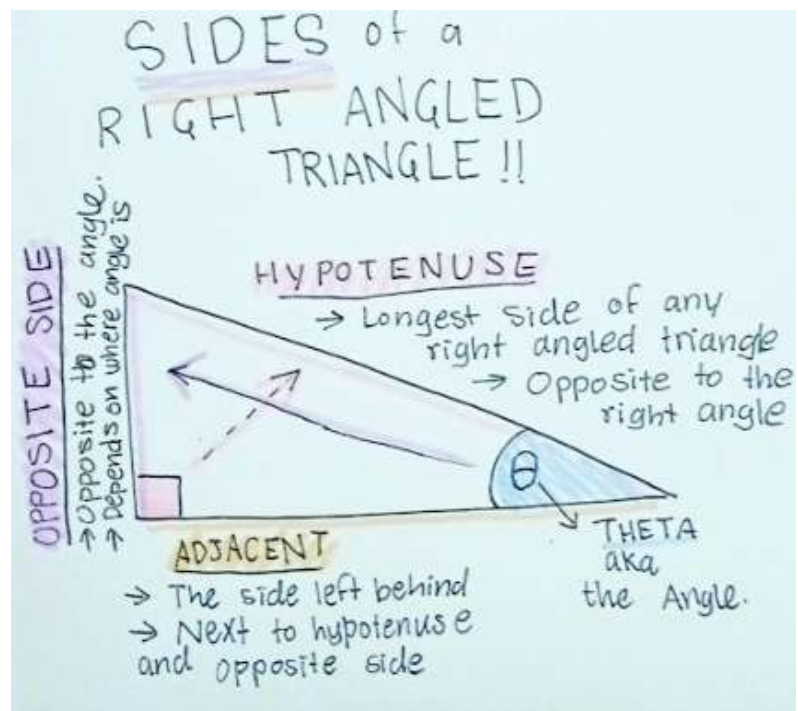 SIDES of a
RIGHT ANGLED
TRIANGLE !!
OPPOSITE SIDE
→ Opposite to the angle.
→ Depends on where angle is
HYPOTENUSE
→ Longest side of any
right angled triangle
→ Opposite to the
right angle
θ
THETA
aka
the Angle.
ADJACENT
→ The side left behind
→ Next to hypotenuse
and opposite side